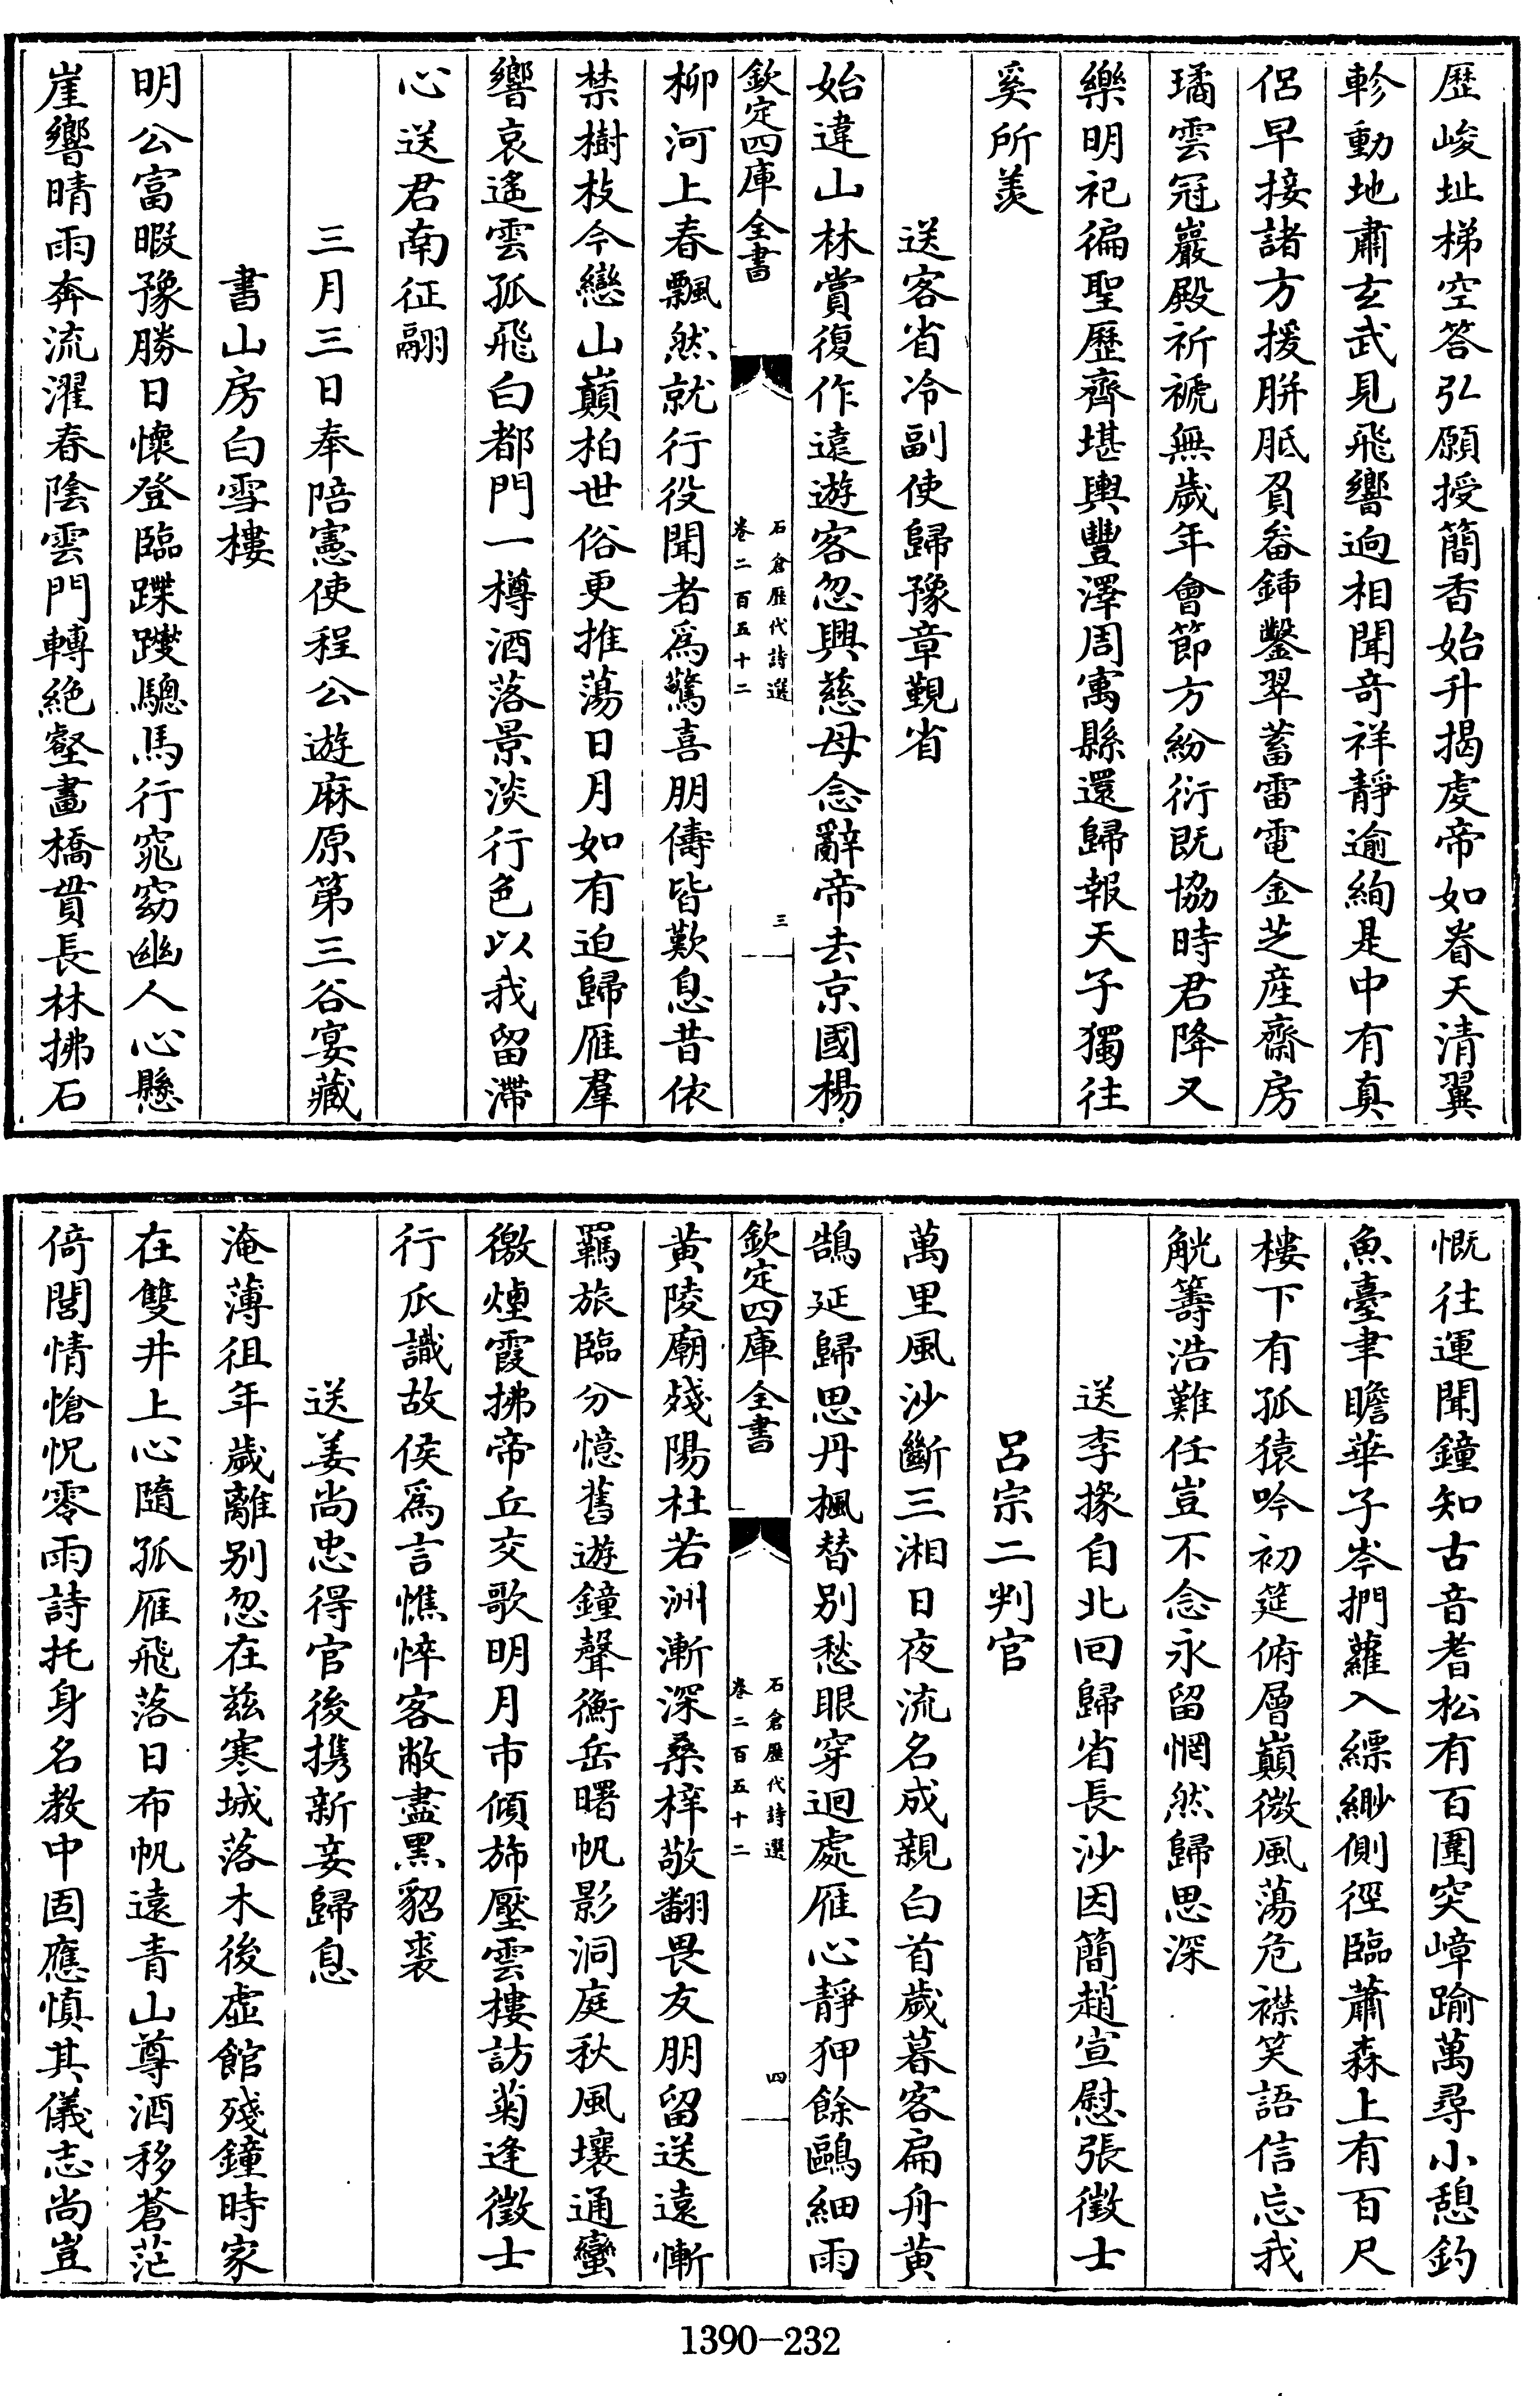 歷峻址梯空答弘願授簡香始升揭虔帝如眷天清翼
軫動地肅玄武見飛響逈相聞竒祥靜逾絢是中有真
侶早接諸方援胼胝負畚鍤鑿翠蓄雷電金芝産齋房
璚雲冠巖殿祈禠無歲年會節方紛衍既協時君降又
樂明祀徧聖歷齊堪輿豐澤周寓縣還歸報天子獨往
奚所羨
送客省冷副使歸豫章覲省
始違山林賞復作遠遊客忽興慈母念辭帝去京國楊
欽定四庫全書
石倉歷代詩選
卷二百五十二
三
柳河上春飄然就行役聞者為驚喜朋儔皆歎息昔依
禁樹枝今戀山巔柏世俗更推蕩日月如有迫歸雁羣
響哀遙雲孤飛白都門一樽酒落景淡行色以我留滯
心送君南征翮
三月三日奉陪憲使程公遊麻原第三谷宴藏
書山房白雪樓
明公富暇豫勝日懷登臨蹀躞驄馬行窕窈幽人心懸
崖響晴雨奔流濯春陰雲門轉絶壑畫橋貫長林拂石
慨往運聞鐘知古音耆松有百圍突嶂踰萬尋小憩釣
魚臺聿瞻華子岑捫蘿入縹緲側徑臨蕭森上有百尺
樓下有孤猿吟初筵俯層巔微風蕩危襟笑語信忘我
觥籌浩難任豈不念永留惘然歸思深
送李掾自北回歸省長沙因簡趙宣慰張徵士
呂宗二判官
萬里風沙斷三湘日夜流名成親白首歲暮客扁舟黃
鵠延歸思丹楓替别愁眼穿迴處雁心靜狎餘鷗細雨
欽定四庫全書
石倉歷代詩選
卷二百五十二
四
黃陵廟殘陽杜若洲漸深桑梓敬翻畏友朋留送遠慚
羈旅臨分憶舊遊鐘聲衡岳曙帆影洞庭秋風壤通蠻
徼煙霞拂帝丘交歌明月市傾斾壓雲樓訪菊逢徵士
行瓜識故侯為言憔悴客敝盡黑貂裘
送姜尚忠得官後携新妾歸息
淹薄徂年歲離别忽在兹寒城落木後虛館殘鐘時家
在雙井上心隨孤雁飛落日布帆遠青山尊酒移蒼茫
倚閭情愴怳零雨詩托身名教中固應慎其儀志尚豈
1390-232